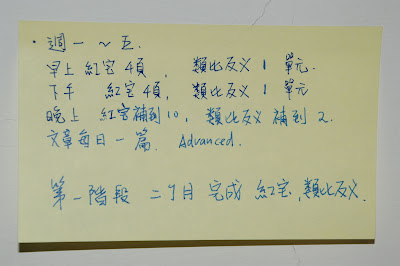 · 週一～五.
早上 紅宝 4項, 類比反义 1 單元.
下午 紅宝 4項, 類比反义 1 單元
晚上 紅宝補到10, 類比反义 補到 2.
文章每日一篇. Advanced.
第一階段 二个月 完成 紅宝, 類比反义.